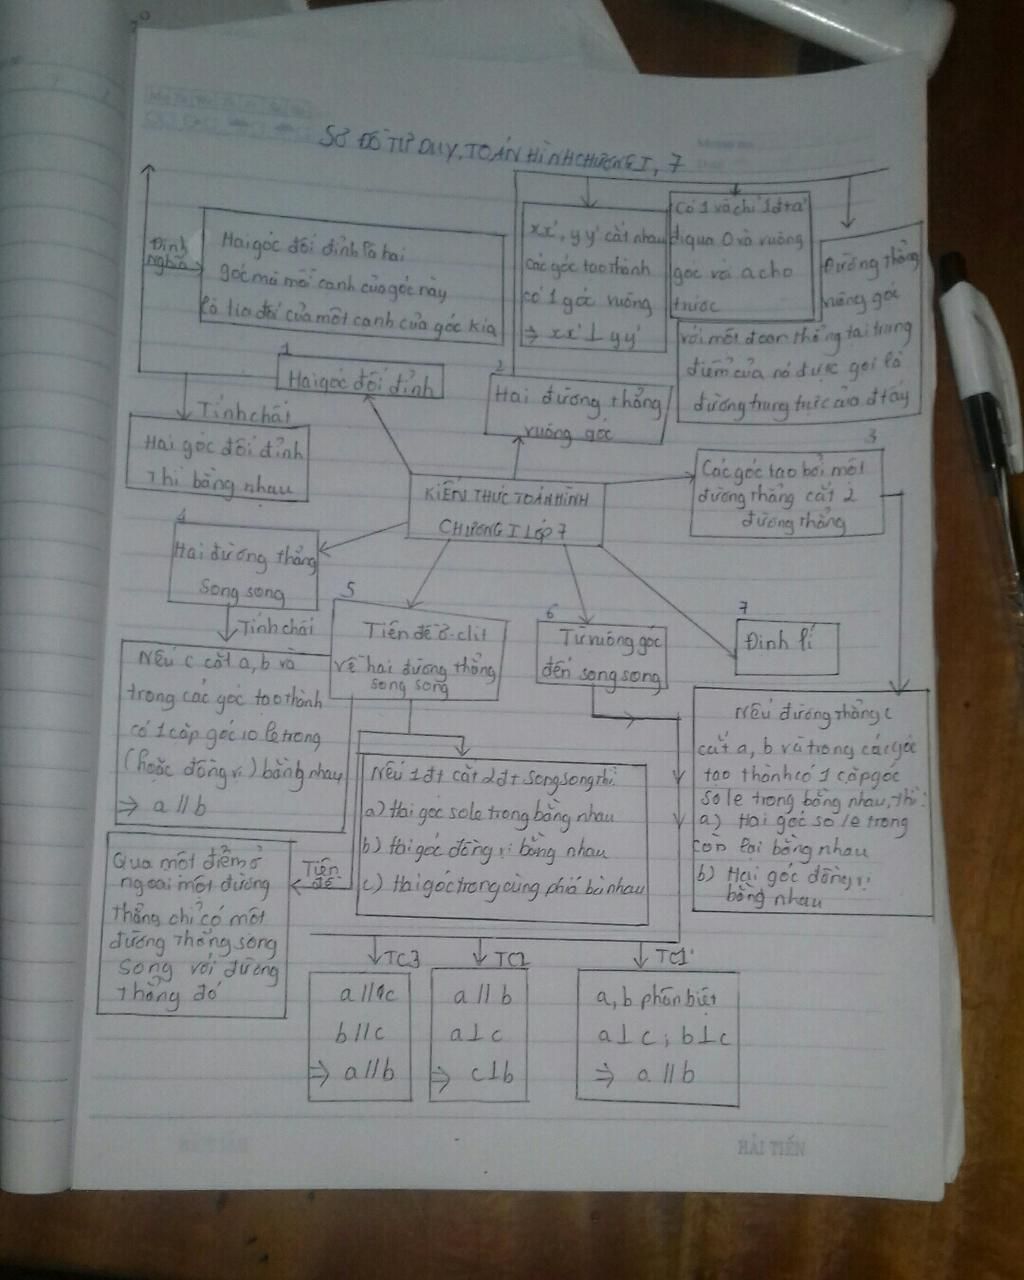 SƠ ĐỒ TƯ DUY, TOÁN HÌNH CHƯƠNG I, 7
Định
nghĩa
Hai góc đối đỉnh là hai
góc mà mỗi cạnh của góc này
là tia đối của một cạnh của góc kia
1
Hai góc đối đỉnh
Tính chất
Hai góc đối đỉnh
thì bằng nhau
xx', yy' cắt nhau
các góc tạo thành
có 1 góc vuông
⇒ xx' ⊥ yy'
Có 1 và chỉ 1 đt a'
đi qua O và vuông
góc với a cho
trước
Đường thẳng
vuông góc
với một đoạn thẳng tại trung
điểm của nó được gọi là
đường trung trực của đt ấy
2
Hai đường thẳng
vuông góc
KIẾN THỨC TOÁN HÌNH
CHƯƠNG I LỚP 7
3
Các góc tạo bởi một
đường thẳng cắt 2
đường thẳng
4
Hai đường thẳng
song song
Tính chất
Nếu c cắt a, b và
trong các góc tạo thành
có 1 cặp góc so le trong
(hoặc đồng vị) bằng nhau
⇒ a // b
5
Tiên đề ơ-clit
về hai đường thẳng
song song
6
Từ vuông góc
đến song song
7
Định lí
Nếu đường thẳng c
cắt a, b và trong các góc
tạo thành có 1 cặp góc
so le trong bằng nhau, thì:
a) Hai góc so le trong
còn lại bằng nhau
b) Hai góc đồng vị
bằng nhau
Nếu 1 đt cắt 2 đt song song thì:
a) Hai góc so le trong bằng nhau
b) Hai góc đồng vị bằng nhau
c) Hai góc trong cùng phía bù nhau
Tiên
đề
Qua một điểm ở
ngoài một đường
thẳng chỉ có một
đường thẳng song
song với đường
thẳng đó
TC3
a // c
b // c
⇒ a // b
TC2
a // b
a ⊥ c
⇒ c ⊥ b
TC1
a, b phân biệt
a ⊥ c; b ⊥ c
⇒ a // b
HẢI TIẾN